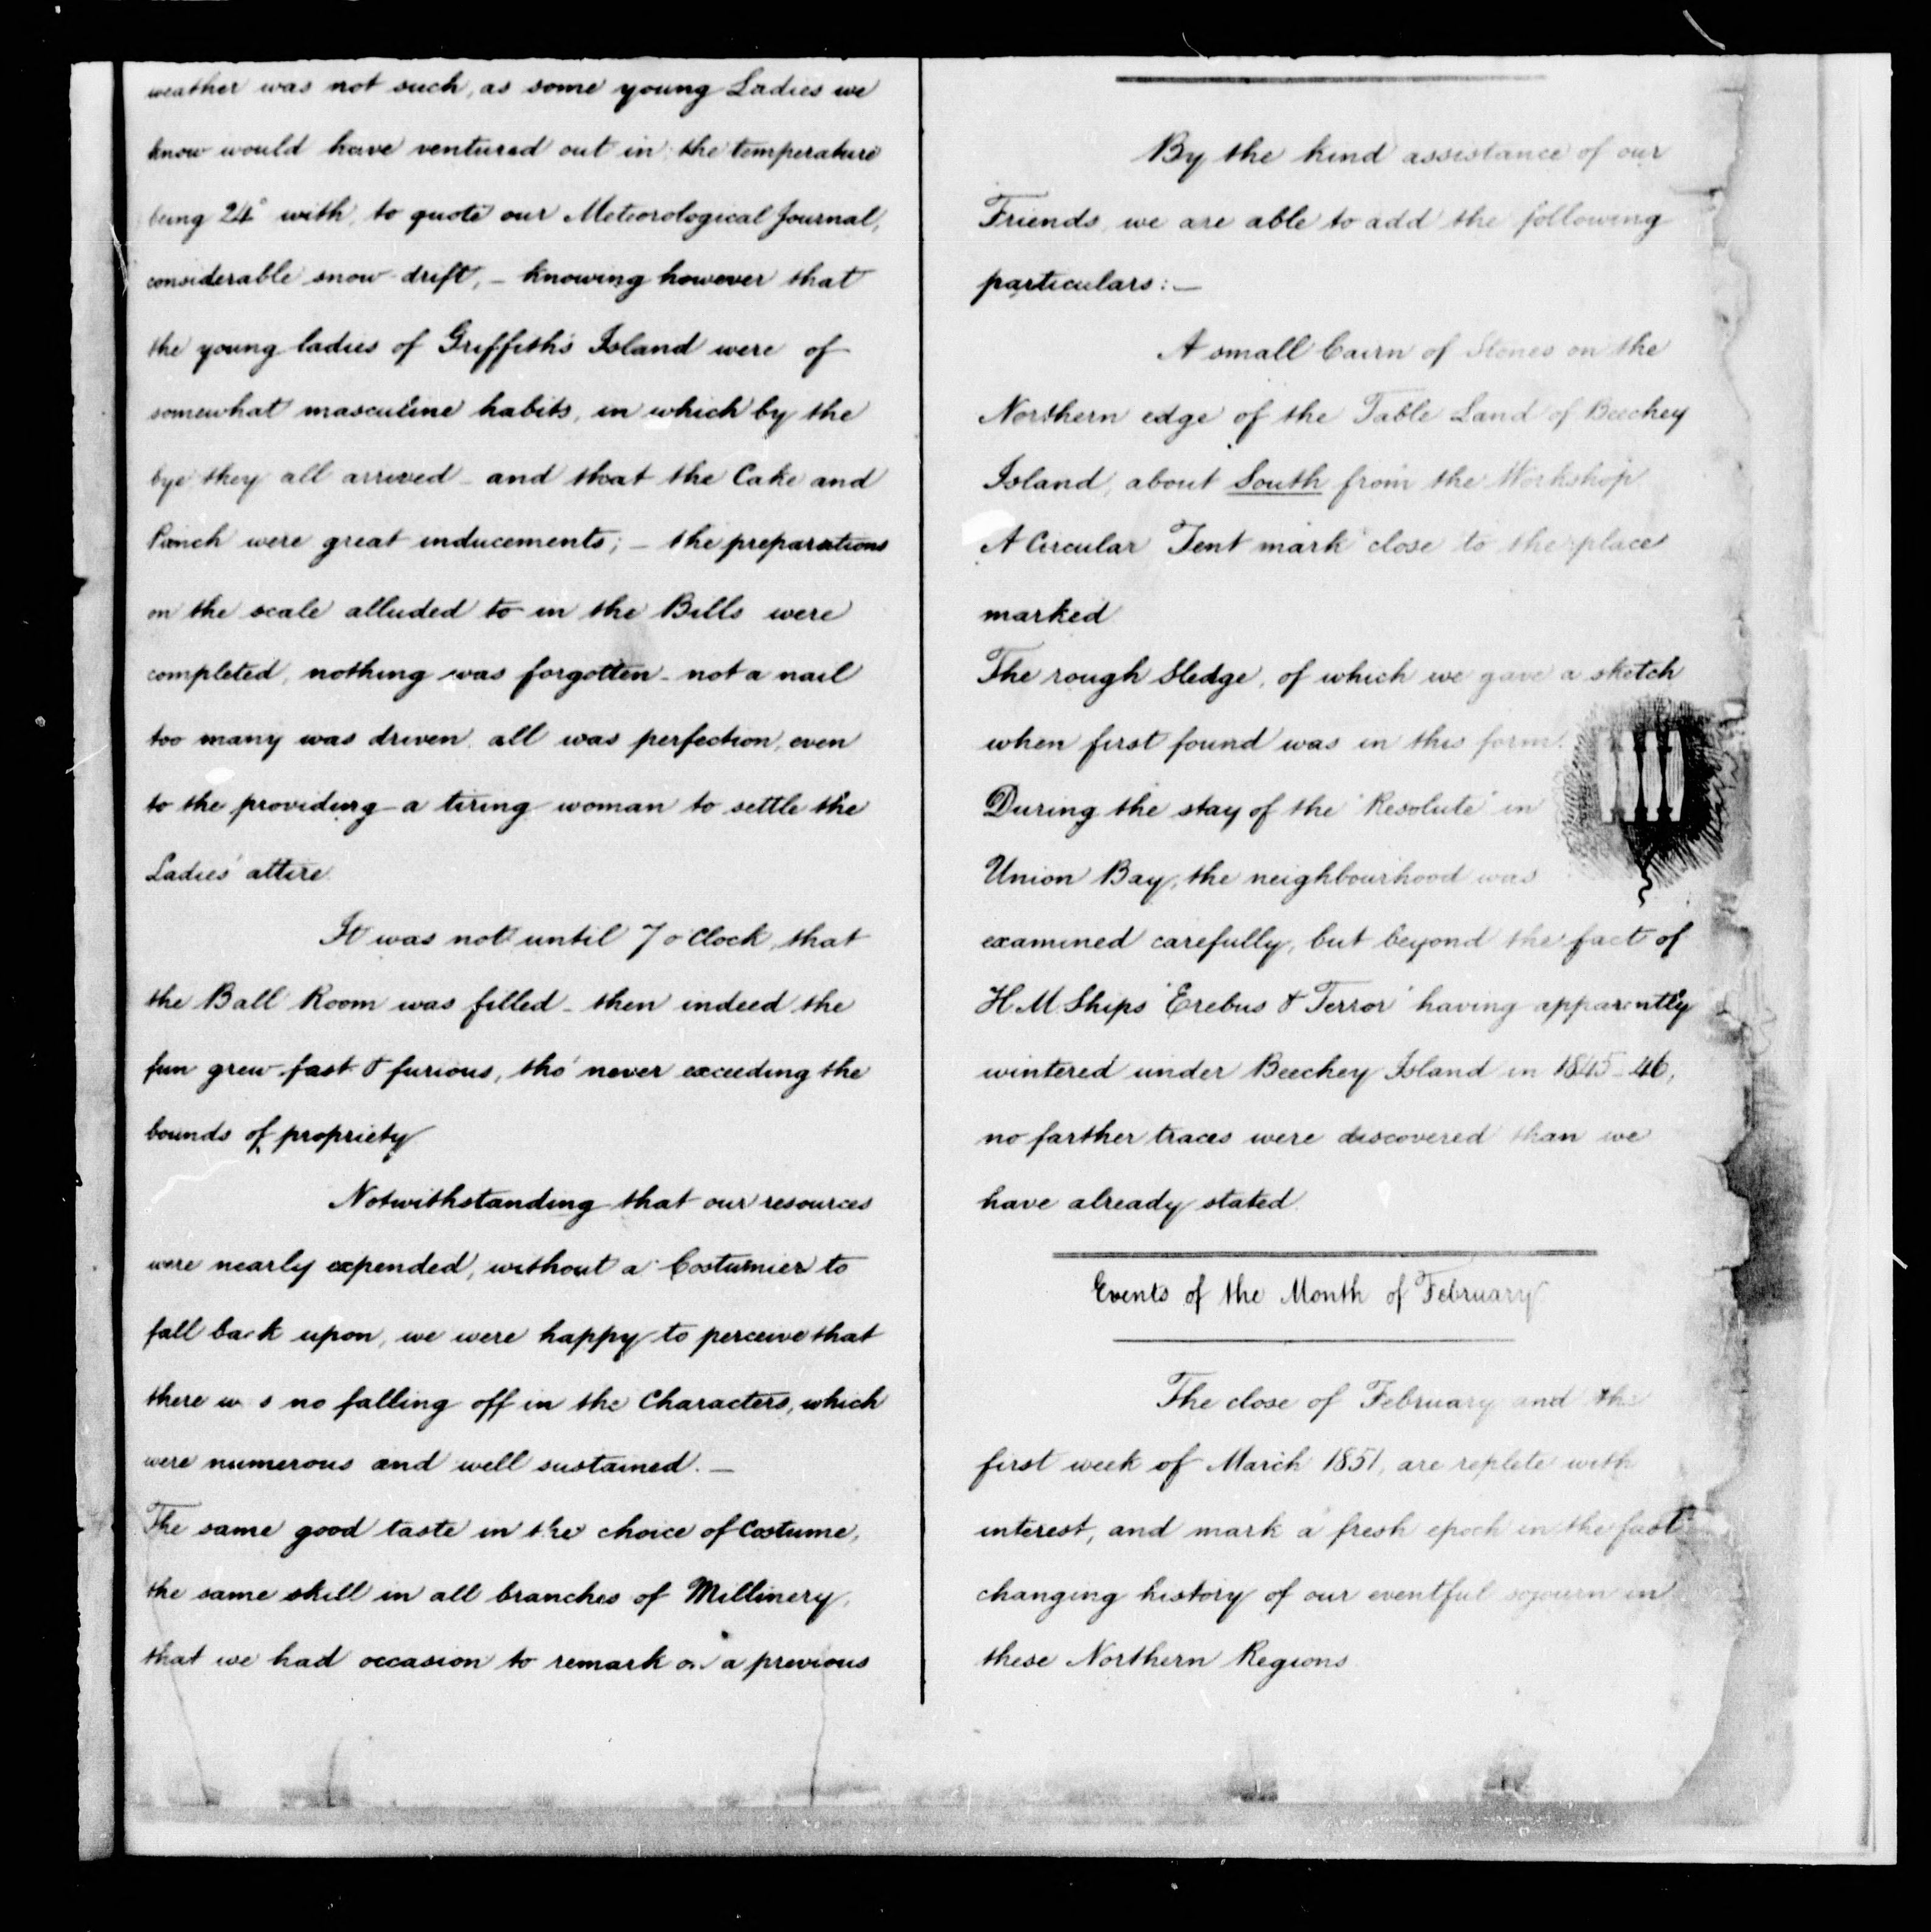 weather was not such, as some young Ladies we
know would have ventured out in, the temperature
being 24° with, to quote our Meteorological Journal,
considerable snow drift, – knowing however that
the young ladies of Griffith's Island were of
somewhat masculine habits, in which by the
bye they all arrived – and that the Cake and
Punch were great inducements; – the preparations
on the scale alluded to in the Bills were
completed, nothing was forgotten – not a nail
too many was driven, all was perfection, even
to the providing a tiring woman to settle the
Ladies' attire.
It was not until 7 o'Clock, that
the Ball Room was filled – then indeed the
fun grew fast & furious, tho' never exceeding the
bounds of propriety
Notwithstanding that our resources
were nearly expended, without a Costumier to
fall back upon, we were happy to perceive that
there w s no falling off in the Characters, which
were numerous and well sustained. –
The same good taste in the choice of Costume,
the same skill in all branches of Millinery,
that we had occasion to remark on a previous
By the kind assistance of our
Friends, we are able to add the following
particulars: –
A small Cairn of Stones on the
Northern edge of the Table Land of Beechey
Island, about South from the Workshop
A Circular Tent mark close to the place
marked
The rough Sledge, of which we gave a sketch
when first found was in this form.
During the stay of the "Resolute" in
Union Bay, the neighbourhood was
examined carefully, but beyond the fact of
H.M. Ships "Erebus & Terror" having apparently
wintered under Beechey Island in 1845–46,
no farther traces were discovered than we
have already stated.
Events of the Month of February
The close of February and the
first week of March 1851, are replete with
interest, and mark a fresh epoch in the fast
changing history of our eventful sojourn in
these Northern Regions